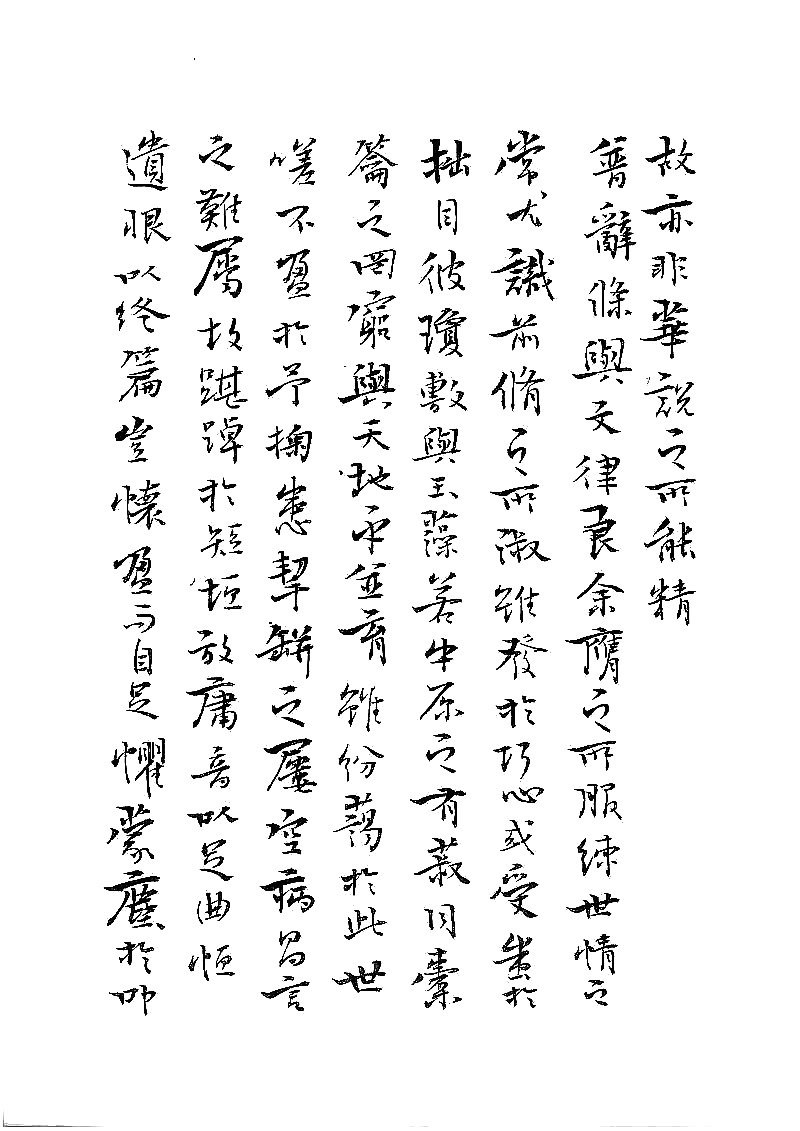 故亦非華說之所能精
普辭條與文律良余膺之所服練世情之
常尤識前脩之所淑雖發於巧心或受蚩於
拙目彼瓊敷與玉藻若中原之有菽同橐
籥之罔窮與天地乎並育雖紛藹於此世
嗟不盈於予掬患挈缾之屢空病昌言
之難屬故踸踔於短垣放庸音以足曲恒
遺恨以終篇豈懷盈而自足懼蒙塵於叩